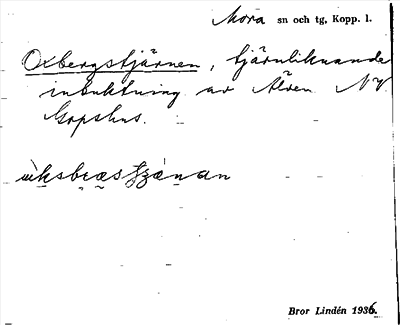 Mora sn och tg, Kopp. l.
Oxbergstjärnen, tjärnliknande
inbuktning av Älven NV
Gopshus.
Bror Lindén 1936.